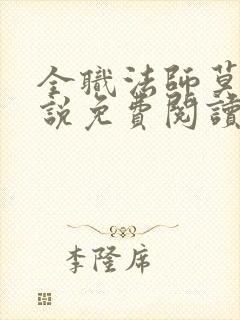 全職法師莫
說免費閱讀
李隆席